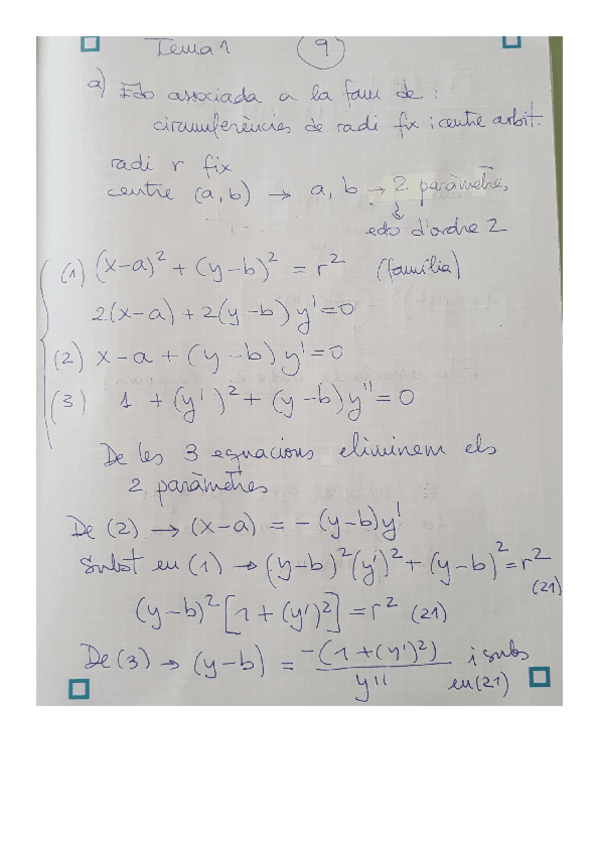 Tema 1 (9)
a) Edo associada a la fam de :
circumferències de radi fix i centre arbit.
radi r fix
centre (a, b) → a, b → 2 paràmetres
↓
edo d'ordre 2
(1) (x-a)² + (y-b)² = r² (família)
2(x-a) + 2(y-b) y' = 0
(2) x-a + (y-b) y' = 0
(3) 1 + (y')² + (y-b) y'' = 0
De les 3 equacions eliminem els
2 paràmetres
De (2) → (x-a) = -(y-b)y'
Subst en (1) → (y-b)²(y')² + (y-b)² = r²
(21)
(y-b)² [1 + (y')²] = r² (21)
De (3) → (y-b) = -(1+(y')²) / y'' i subs
en (21)